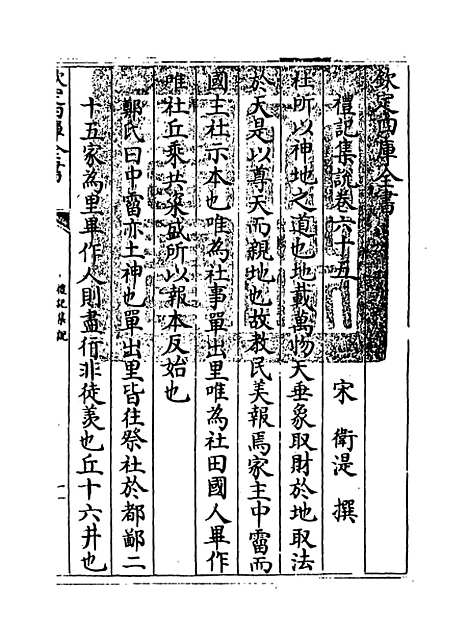 欽定四庫全書
禮記集說卷六十五
宋 衛湜 撰
社所以神地之道也地載萬物天垂象取財於地取法
於天是以尊天而親地也故教民美報焉家主中霤而
國主社示本也唯為社事單出里唯為社田國人畢作
唯社丘乘共粢盛所以報本反始也
鄭氏曰中霤亦土神也單出里皆往祭社於都鄙二
十五家為里畢作人則盡行非徒羡也丘十六井也
欽定四庫全書
禮記集說